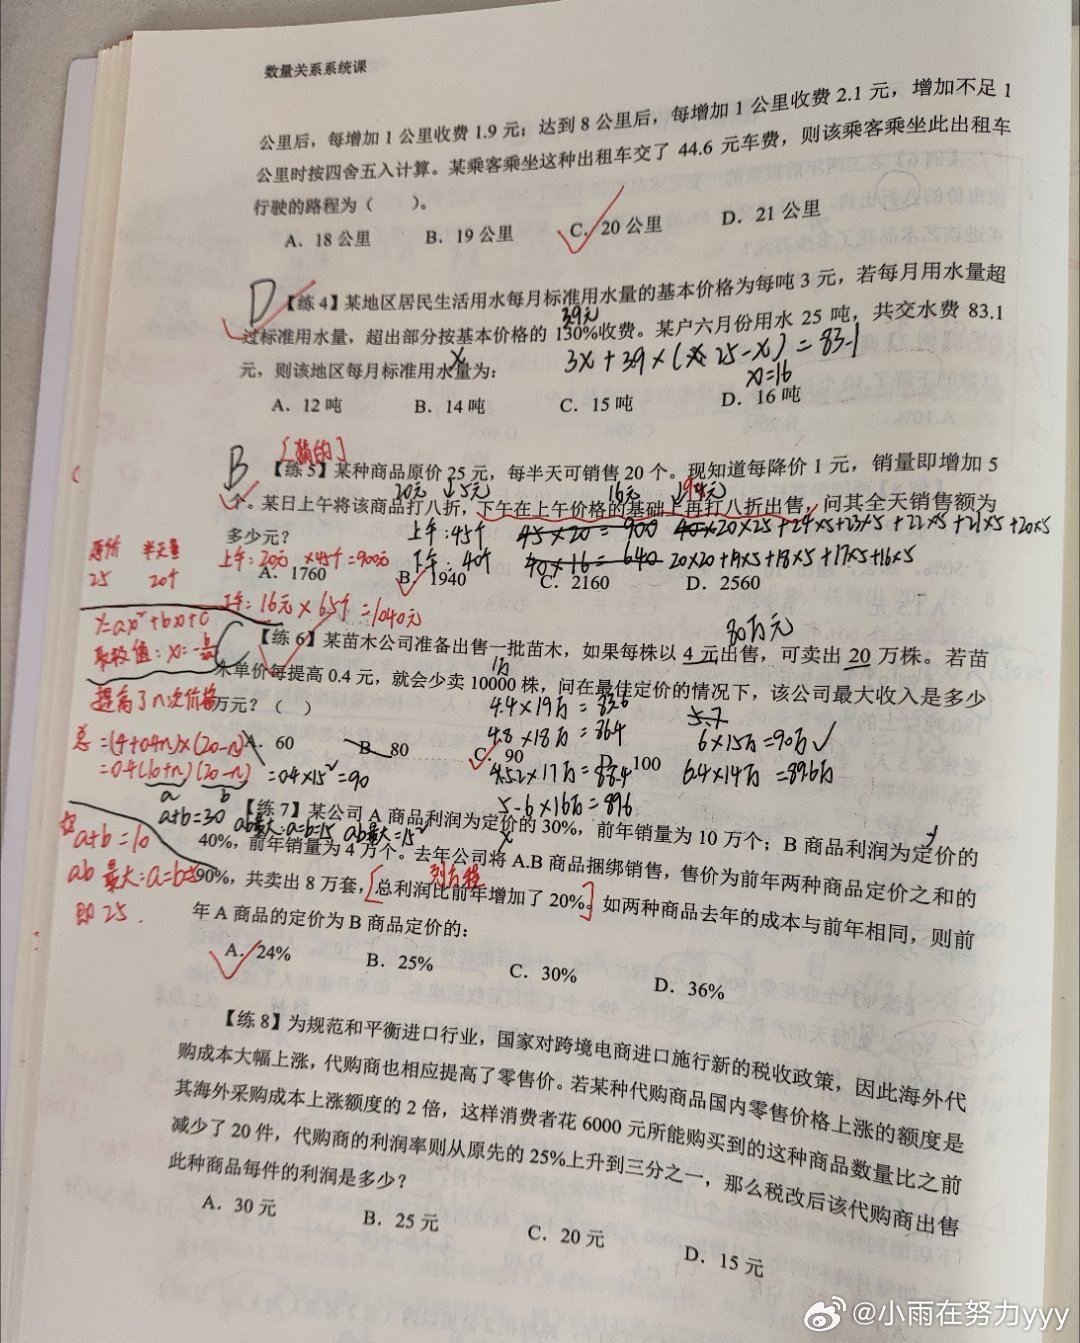 数量关系系统课
公里后，每增加 1 公里收费 1.9 元；达到 8 公里后，每增加 1 公里收费 2.1 元，增加不足 1
公里时按四舍五入计算。某乘客乘坐这种出租车交了 44.6 元车费，则该乘客乘坐此出租车
行驶的路程为（ ）。
A. 18 公里 B. 19 公里 C. 20 公里 D. 21 公里
D
【练 4】某地区居民生活用水每月标准用水量的基本价格为每吨 3 元，若每月用水量超
3.9元
过标准用水量，超出部分按基本价格的 130%收费。某户六月份用水 25 吨，共交水费 83.1
x
3x+3.9×(25-x)=83.1
元，则该地区每月标准用水量为：
x=16
A. 12 吨 B. 14 吨 C. 15 吨 D. 16 吨
[猜的]
B
【练 5】某种商品原价 25 元，每半天可销售 20 个。现知道每降价 1 元，销量即增加 5
20元 ↓5元 16元 ↓9元
个。某日上午将该商品打八折，下午在上午价格的基础上再打八折出售，问其全天销售额为
多少元？
上午:45个 45×20=900 20×25+24×5+23×5+22×5+21×5+20×5
下午:40个 40×16=640 20×20+19×5+18×5+17×5+16×5
原价 半天量
25 20个
上午:20元×45个=900元
A. 1760 B. 1940 C. 2160 D. 2560
下午:16元×65个=1040元
y=ax²+bx+c
C
80万元
【练 6】某苗木公司准备出售一批苗木，如果每株以 4 元出售，可卖出 20 万株。若苗
1万
木单价每提高 0.4 元，就会少卖 10000 株，问在最佳定价的情况下，该公司最大收入是多少
万元？（ ）
提高了n次价格
总=(4+0.4n)×(20-n)
=0.4(10+n)(20-n)=0.4×15²=90
a b
a+b=30 ab最大:a=b=15 ab最大=15²
4.4×19万=83.6
4.8×18万=86.4
×17万=88.4
5.6×16万=89.6
5.7
6×15万=90万✓
6.4×14万=89.6万
A. 60 B. 80 C. 90 D. 100
【练 7】某公司 A 商品利润为定价的 30%，前年销量为 10 万个；B 商品利润为定价的
x y
40%，前年销量为 4 万个。去年公司将 A.B 商品捆绑销售，售价为前年两种商品定价之和的
列方程
90%，共卖出 8 万套，[总利润比前年增加了 20%。]如两种商品去年的成本与前年相同，则前
年 A 商品的定价为 B 商品定价的：
a+b=10
ab最大:a=b=5
即25.
A. 24% B. 25% C. 30% D. 36%
【练 8】为规范和平衡进口行业，国家对跨境电商进口施行新的税收政策，因此海外代
购成本大幅上涨，代购商也相应提高了零售价。若某种代购商品国内零售价格上涨的额度是
其海外采购成本上涨额度的 2 倍，这样消费者花 6000 元所能购买到的这种商品数量比之前
减少了 20 件，代购商的利润率则从原先的 25%上升到三分之一，那么税改后该代购商出售
此种商品每件的利润是多少？
A. 30 元 B. 25 元 C. 20 元 D. 15 元
@小雨在努力yyy